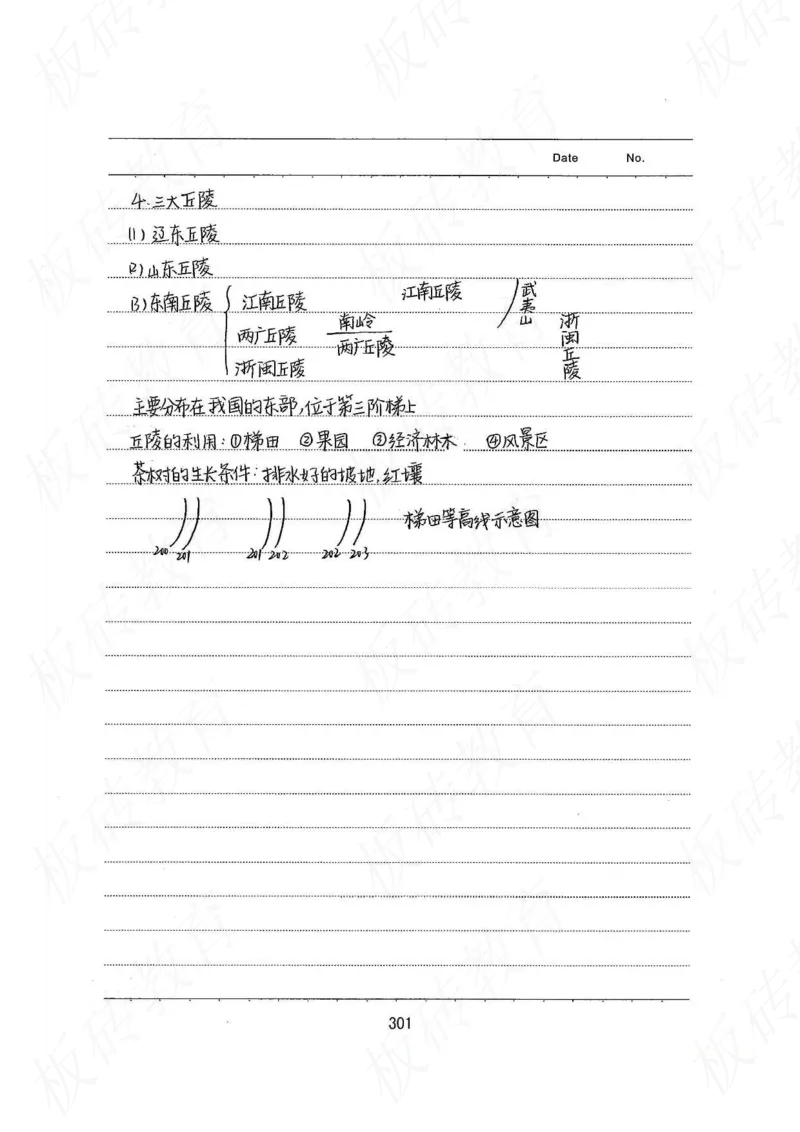 Date No.
4.三大丘陵
(1)辽东丘陵
(2)山东丘陵
(3)东南丘陵{江南丘陵 江南丘陵 武夷山
两广丘陵 南岭 浙闽丘陵
两广丘陵
浙闽丘陵
主要分布在我国的东部,位于第三阶梯上
丘陵的利用:①梯田 ②果园 ③经济林木 ④风景区
茶树的生长条件:排水好的坡地,红壤
梯田等高线示意图
200 201 201 202 202 203
301
板砖教育